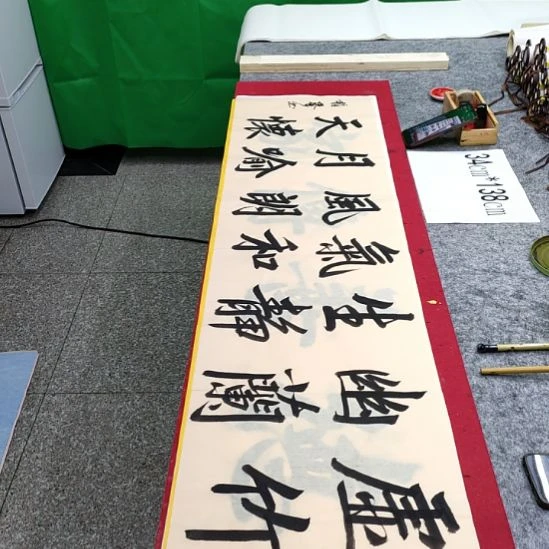 虛竹
幽蘭
生靜
氣和
風朗
月喻
天懷
34cm*138cm